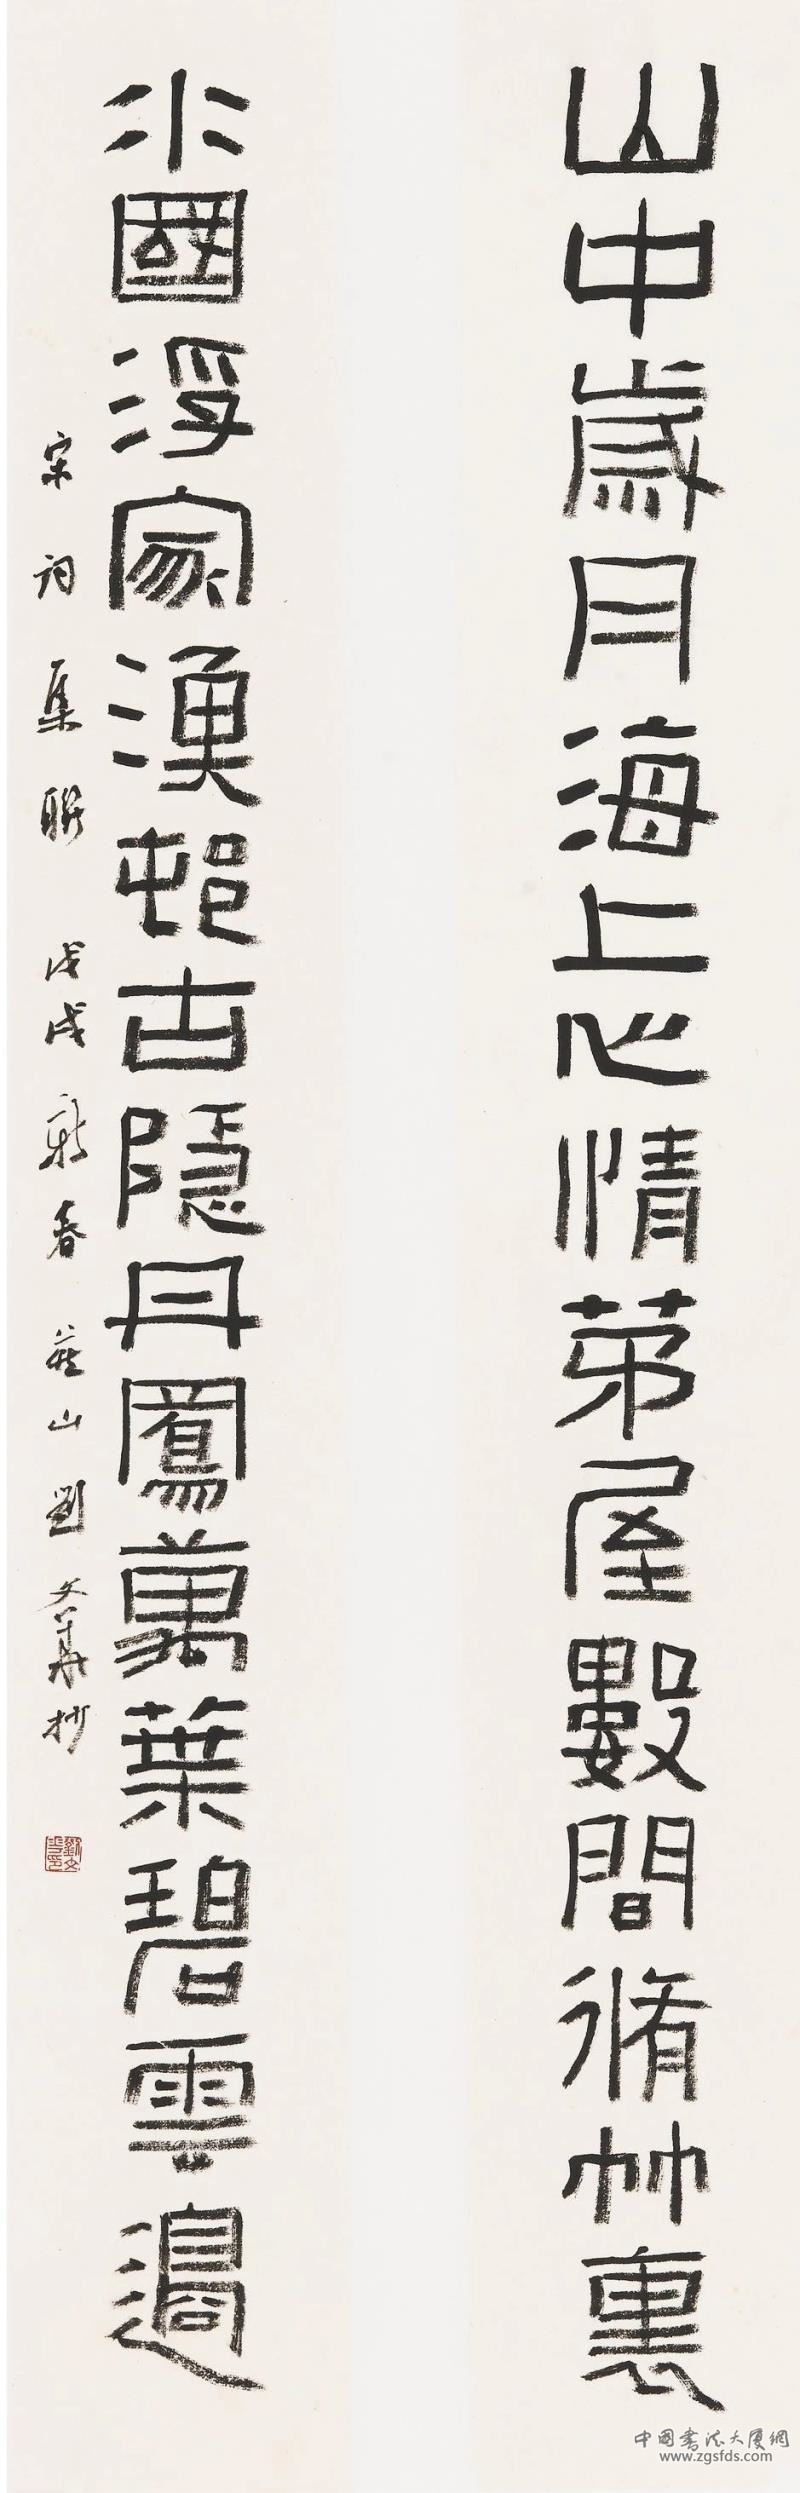 山中歲月海上心情茅屋數間脩竹裏
水國浮家漁邨古隱丹鳳萬葉碧雲邊
宋詞集聯 戊戌新春 燕山劉文華抄
中國書法大厦網
www.zgsfds.com